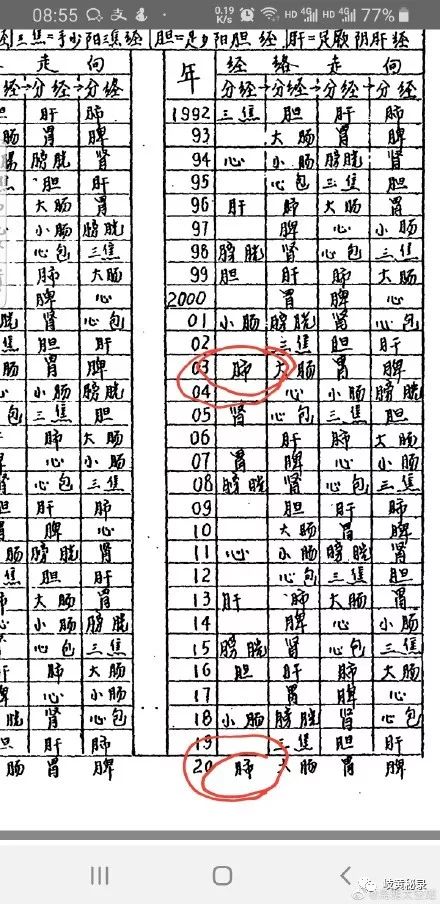 08:55 0.19 K/s HD 4G HD 4G 77%
三焦=手少阳三焦经 胆=足少阳胆经 肝=足厥阴肝经
走向 年 经络走向
经→分经→分络 分经→分经→分经→分络
肝 肺 1992 三焦 胆 肝 肺
肠 胃 脾 93 大肠 胃 脾
肠 膀胱 肾 94 心 小肠 膀胱 肾
焦 胆 肝 95 心包 三焦 胆
大肠 胃 96 肝 肺 大肠 胃
小肠 膀胱 97 脾 心 小肠
心包 三焦 98 膀胱 肾 心包 三焦
肺 大肠 99 胆 肝 肺 大肠
脾 心 2000 胃 脾 心
胱 肾 心包 01 小肠 膀胱 肾 心包
焦 胆 肝 02 三焦 胆 肝
肠 胃 脾 03 肺 大肠 胃 脾
心 小肠 膀胱 04 心 小肠 膀胱
包 三焦 胆 05 肾 心包 三焦 胆
肺 大肠 06 肝 肺 大肠
心 小肠 07 胃 脾 心 小肠
心包 三焦 08 膀胱 肾 心包 三焦
肝 肺 09 胆 肝 肺
脾 心 10 大肠 胃 脾
肠 膀胱 肾 11 心 小肠 膀胱 肾
焦 胆 肝 12 心包 三焦 胆
大肠 胃 13 肝 肺 大肠 胃
小肠 膀胱 14 脾 心 小肠
心包 三焦 15 膀胱 肾 心包 三焦
肺 大肠 16 胆 肝 肺 大肠
心 小肠 17 胃 脾 心
胱 肾 心包 18 小肠 膀胱 肾 心包
肝 肺 19 三焦 胆 肝
肠 胃 脾 20 肺 大肠 胃 脾
岐黄秘录